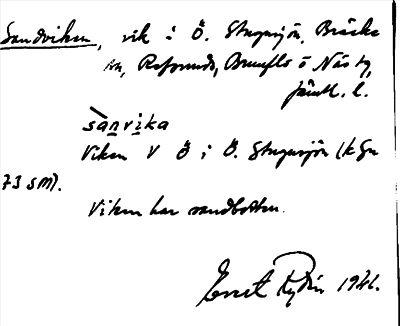 Sandviken, vik i Ö. Stugusjön, Bräcke
sn, Refsunds, Brunflo o Näs tg,
Jämtl. l.
sànvika
Viken V Ö i Ö. Stugusjön (k Gn
73 SM).
Viken har sandbotten.
Ernst Rydén 1941.